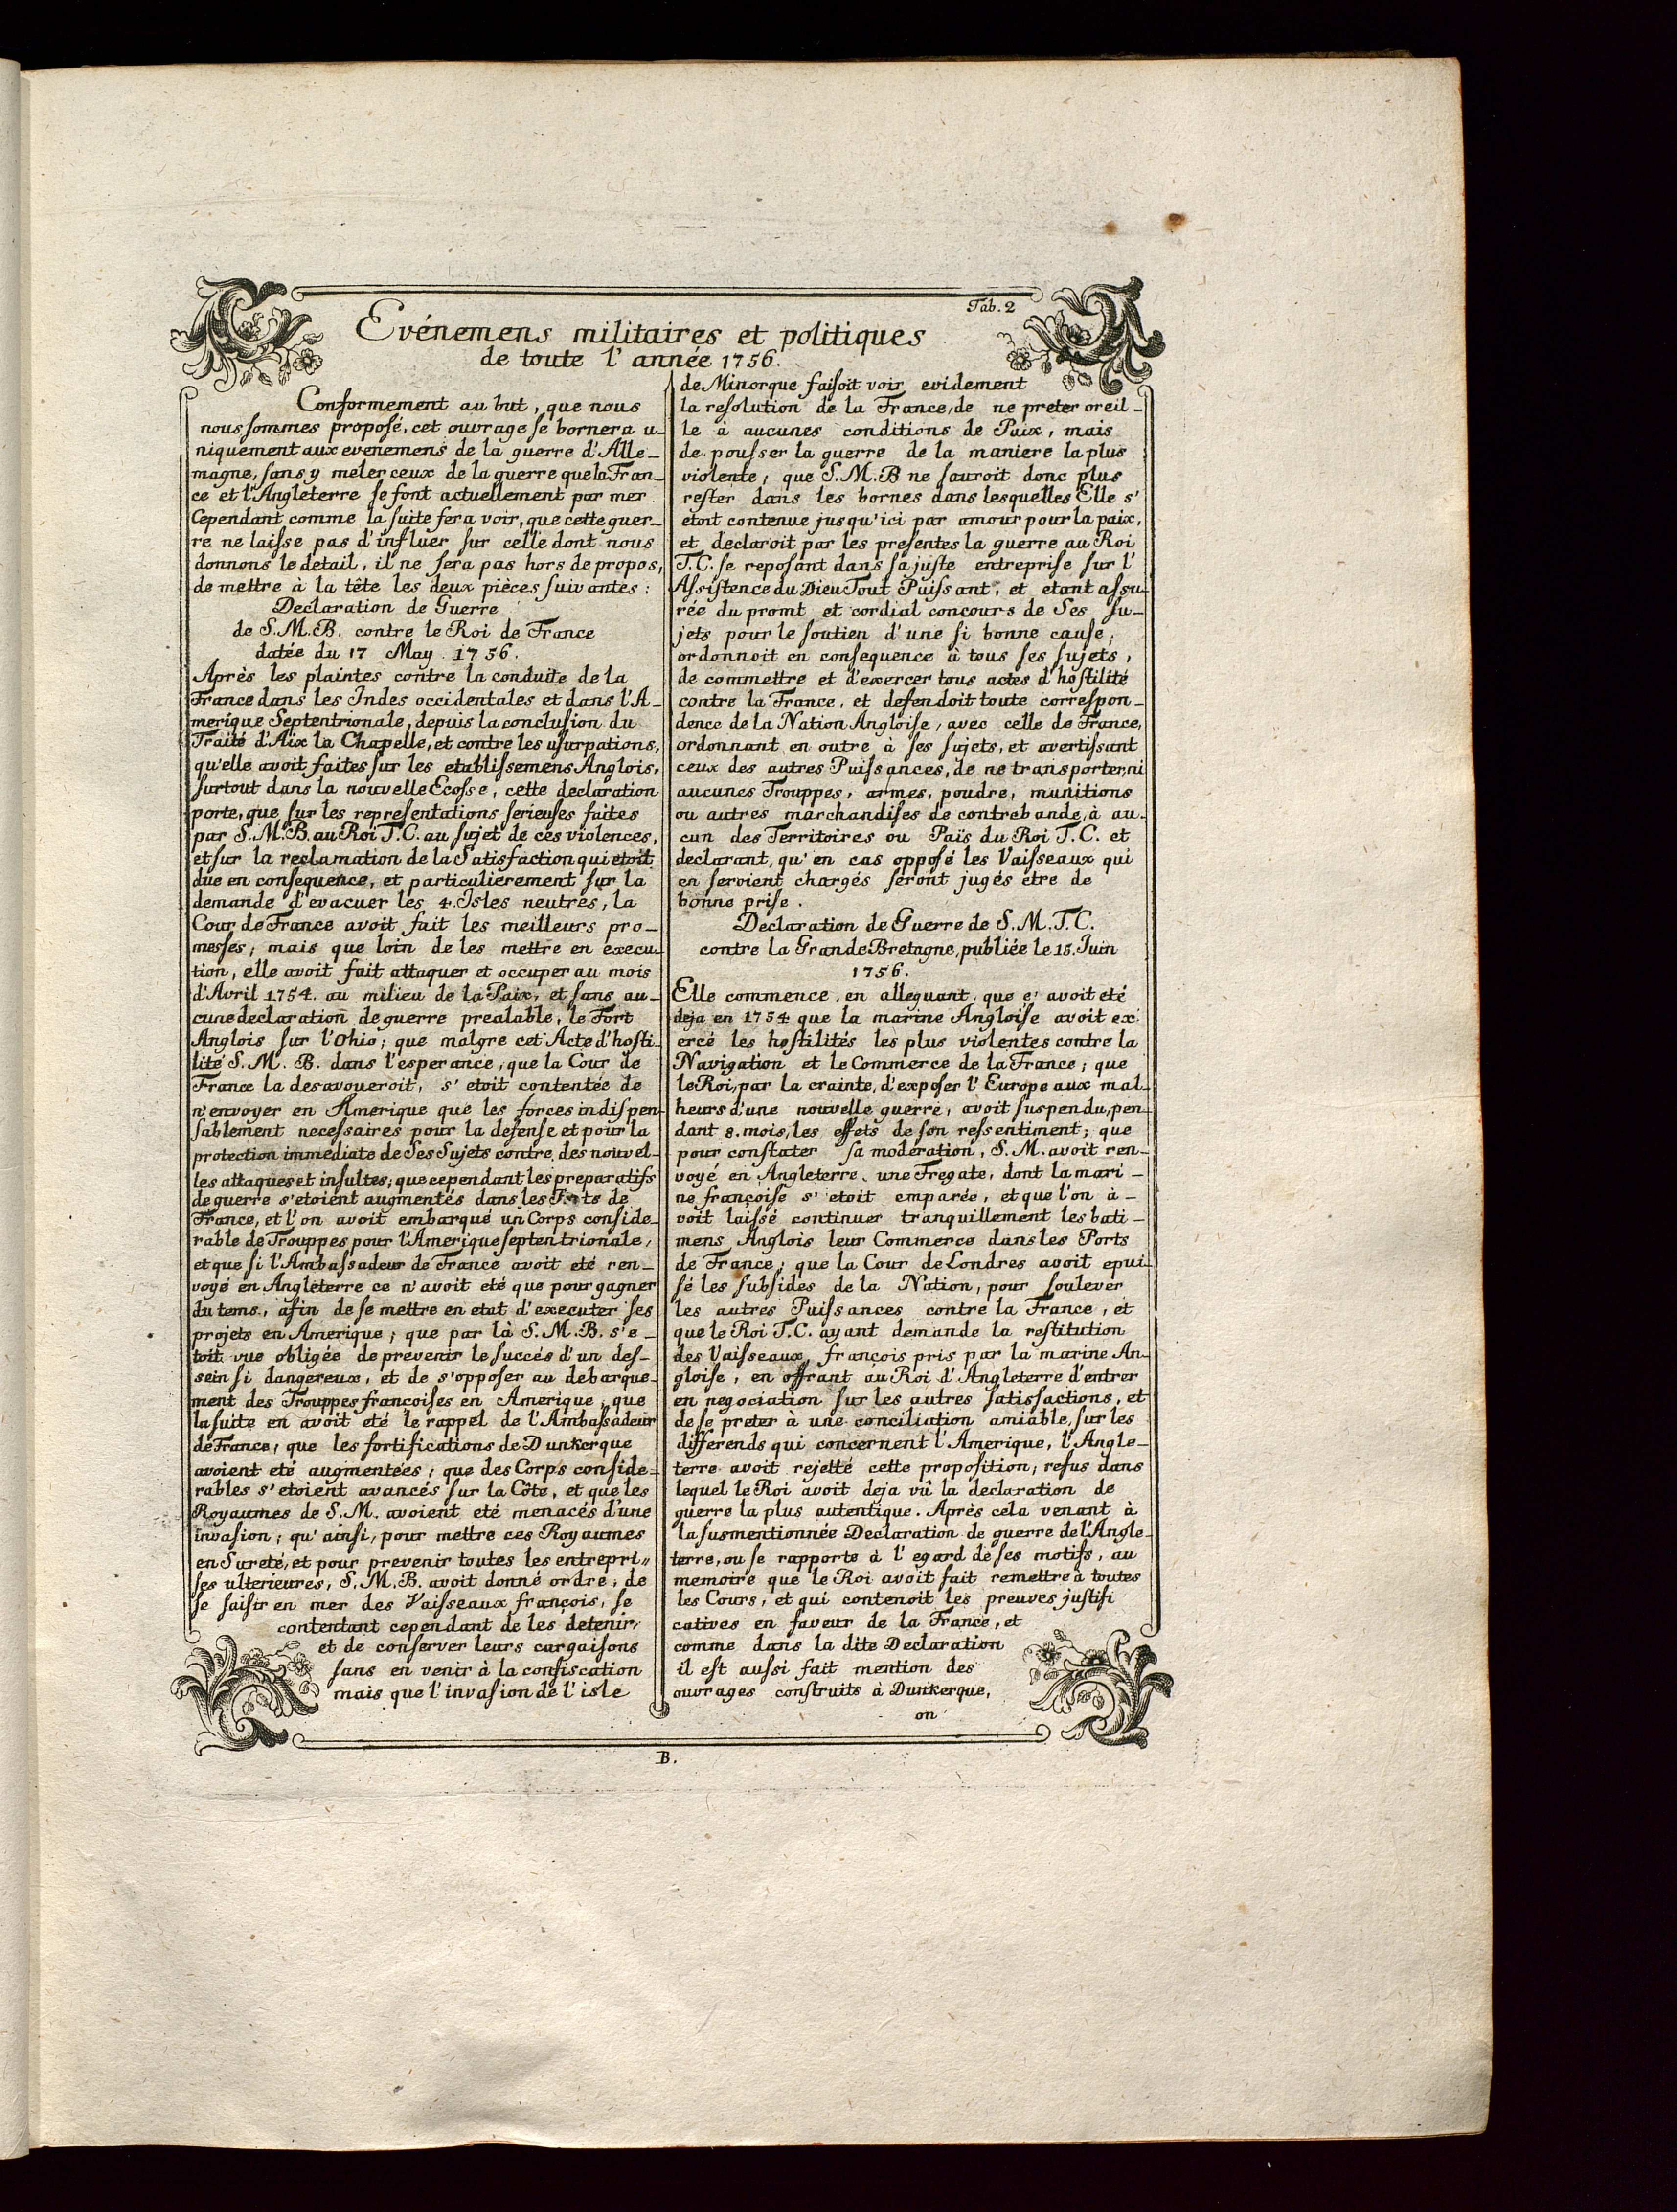 Tab. 2
Evénemens militaires et politiques
de toute l'année 1756.
Conformement au but, que nous
nous sommes proposé, cet ouvrage se bornera u-
niquement aux evenemens de la guerre d'Alle-
magne, sans y meler ceux de la guerre que la Fran-
ce et l'Angleterre se font actuellement par mer
Cependant comme la suite fera voir, que cette guer-
re ne laisse pas d'influer sur celle dont nous
donnons le detail, il ne sera pas hors de propos,
de mettre à la tête les deux pièces suivantes:
Declaration de Guerre
de S.M.B. contre le Roi de France
datée du 17 May. 1756.
Après les plaintes contre la conduite de la
France dans les Indes occidentales et dans l'A-
merique Septentrionale, depuis la conclusion du
Traité d'Aix la Chapelle, et contre les usurpations,
qu'elle avoit faites sur les etablissemens Anglois,
surtout dans la nouvelle Ecosse, cette declaration
porte, que sur les representations serieuses faites
par S.M.B. au Roi T.C. au sujet de ces violences,
et sur la reclamation de la Satisfaction qui etoit
due en consequence, et particulierement sur la
demande d'evacuer les 4. Isles neutres, la
Cour de France avoit fait les meilleurs pro-
messes; mais que loin de les mettre en execu-
tion, elle avoit fait attaquer et occuper au mois
d'Avril 1754. au milieu de la Paix, et sans au-
cune declaration de guerre prealable, le Fort
Anglois sur l'Ohio; que malgre cet Acte d'hosti-
lité S.M.B. dans l'esperance, que la Cour de
France la desavoueroit, s'etoit contentée de
n'envoyer en Amerique que les forces indispen-
sablement necessaires pour la defense et pour la
protection immediate de Ses Sujets contre des nouvel-
les attaques et insultes; que cependant les preparatifs
de guerre s'etoient augmentés dans les Ports de
France, et l'on avoit embarqué un Corps conside-
rable de Trouppes pour l'Amerique septentrionale,
et que si l'Ambassadeur de France avoit eté ren-
voyé en Angleterre ce n'avoit eté que pour gagner
du tems, afin de se mettre en etat d'executer ses
projets en Amerique; que par là S.M.B. s'e-
toit vue obligée de prevenir le succés d'un des-
sein si dangereux, et de s'opposer au debarque-
ment des Trouppes francoises en Amerique; que
la suite en avoit eté le rappel de l'Ambassadeur
de France; que les fortifications de Dunkerque
avoient eté augmentées; que des Corps conside-
rables s'etoient avancés sur la Côte, et que les
Royaumes de S.M. avoient eté menacés d'une
invasion; qu'ainsi, pour mettre ces Royaumes
en Sureté, et pour prevenir toutes les entrepri"
ses ulterieures, S.M.B. avoit donné ordre, de
se saisir en mer des Vaisseaux françois, se
contentant cependant de les detenir,
et de conserver leurs cargaisons
sans en venir à la confiscation
mais que l'invasion de l'isle
de Minorque faisoit voir evidement
la resolution de la France, de ne preter oreil-
le à aucunes conditions de Paix, mais
de pousser la guerre de la maniere la plus
violente; que S.M.B ne sauroit donc plus
rester dans les bornes dans lesquelles Elle s'
etoit contenue jusqu'ici par amour pour la paix,
et declaroit par les presentes la guerre au Roi
T.C. se reposant dans sa juste entreprise sur l'
Assistence du Dieu Tout Puissant, et etant assu-
rée du promt et cordial concours de Ses su-
jets pour le soutien d'une si bonne cause;
ordonnoit en consequence à tous ses sujets,
de commettre et d'exercer tous actes d'hostilité
contre la France, et defendoit toute correspon-
dence de la Nation Angloise, avec celle de France,
ordonnant en outre à ses sujets, et avertissant
ceux des autres Puissances, de ne transporter, ni
aucunes Trouppes, armes, poudre, munitions
ou autres marchandises de contrebande, à au-
cun des Territoires ou Païs du Roi T.C. et
declarant, qu'en cas opposé les Vaisseaux qui
en seroient chargés seront jugés etre de
bonne prise.
Declaration de Guerre de S.M.T.C.
contre la Grande Bretagne, publiée le 15. Juin
1756.
Elle commence, en alleguant, que c' avoit eté
deja en 1754 que la marine Angloise avoit ex
ercé les hostilités les plus violentes contre la
Navigation et le Commerce de la France; que
le Roi, par la crainte, d'exposer l'Europe aux mal-
heurs d'une nouvelle guerre, avoit suspendu, pen-
dant 8. mois, les effets de son ressentiment; que
pour constater sa moderation, S.M. avoit ren-
voyé en Angleterre, une Fregate, dont la mari-
ne françoise s'etoit emparée, et que l'on à-
voit laissé continuer tranquillement les bati-
mens Anglois leur Commerce dans les Ports
de France; que la Cour de Londres avoit epui-
sé les subsides de la Nation, pour soulever
les autres Puissances contre la France, et
que le Roi T.C. ayant demande la restitution
des Vaisseaux françois pris par la marine An-
gloise, en offrant au Roi d'Angleterre d'entrer
en negociation sur les autres satisfactions, et
de se preter à une conciliation amiable, sur les
differends qui concernent l'Amerique, l'Angle-
terre avoit rejetté cette proposition; refus dans
lequel le Roi avoit deja vû la declaration de
guerre la plus autentique. Après cela venant à
la susmentionnée Declaration de guerre de l'Angle-
terre, ou se rapporte à l'egard de ses motifs, au
memoire que le Roi avoit fait remettre à toutes
les Cours, et qui contenoit les preuves justifi
catives en faveur de la France, et
comme dans la dite Declaration
il est aussi fait mention des
ouvrages construits à Dunkerque,
on
B.